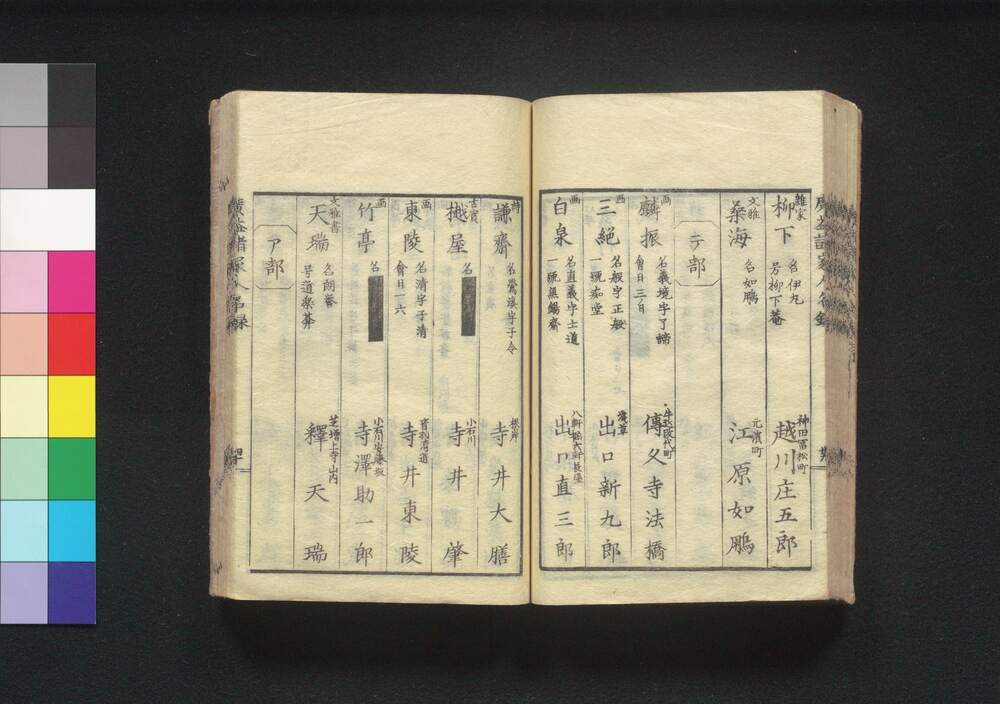 雜家
柳下
名伊丸
号柳下菴
神田冨松町
越川庄五郎
文雅
桑海
名如鵬
元濱町
江原如鵬
テ部
画
麟振
名義境字了諦
會日三ノ日
牛込改代町
傳久寺法橋
画
三絶
名般字正般
一號痴堂
淺草
出口新九郎
画
白泉
名直義字士道
一號無錫齋
出口直三郎
詩
謙齋
字子令
根岸
寺井大膳
古實
樾屋
名
小石川
寺井肇
画
東陵
名清字子清
會日一六
寺井東陵
画
竹亭
名
寺澤助一郎
文雅書
天瑞
名朗蓉
号道樂莽
芝増上寺山内
釋天瑞
ア部